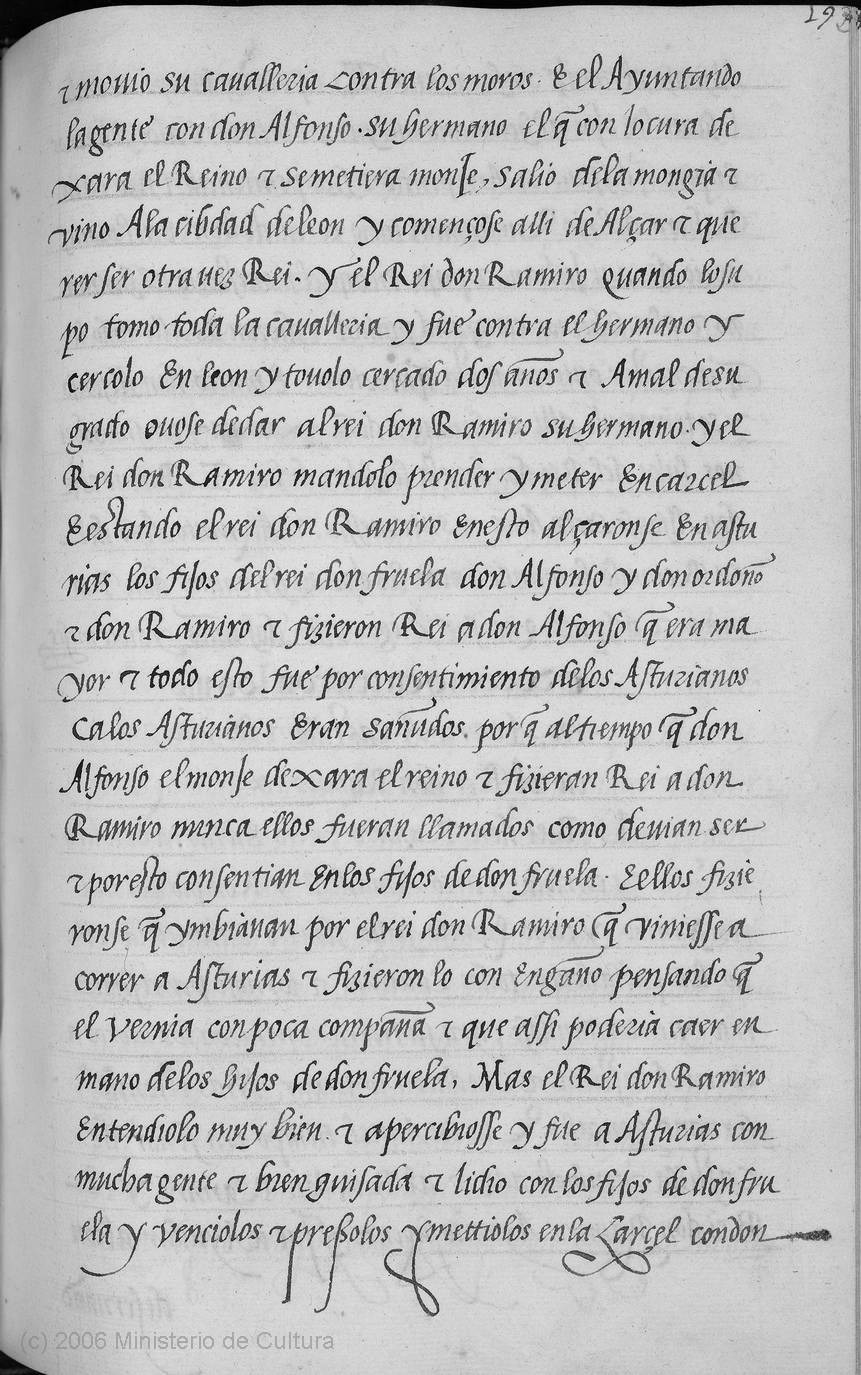 192
⁊ mouio su cavalleria Contra los moros. E el Ayuntando
la gente con don Alfonso. su hermano el q̃ con locura de
xara el Reino ⁊ se metiera monje, salio dela mongia ⁊
vino A la cibdad de leon y començose alli de Alçar ⁊ que
rer ser otra uez Rei. Y el Rei don Ramiro quando lo su
po tomo toda la cavalleria y fue contra el hermano y
cercolo En leon y touolo cercado dos años ⁊ A mal de su
grado ouose de dar al rei don Ramiro su hermano. y el
Rei don Ramiro mandolo prender y meter En carcel
E estando el rei don Ramiro En esto alçaronse En astu
rias los fijos del rei don fruela don Alfonso y don ordoño
⁊ don Ramiro ⁊ fizieron Rei a don Alfonso q̃ era ma
yor ⁊ todo esto fue por consentimiento delos Asturianos
Ca los Asturianos Eran sañudos. por q̃ al tiempo q̃ don
Alfonso el monje dexara el reino ⁊ fizieran Rei a don
Ramiro nunca ellos fueran llamados como deuian ser
⁊ por esto consentian En los fijos de don fruela. E ellos fizie
ronse q̃ ymbiauan por el rei don Ramiro q̃ viniesse a
correr a Asturias ⁊ fizieron lo con Engaño pensando q̃
el vernia con poca compaña ⁊ que assi poderia caer en
mano delos hijos de don fruela, Mas el Rei don Ramiro
Entendiolo muy bien. ⁊ apercibiosse y fue a Asturias con
mucha gente ⁊ bien guisada ⁊ lidio con los fijos de don fru
ela y venciolos ⁊ preßolos y mettiolos en la Carçel con don
(c) 2006 Ministerio de Cultura